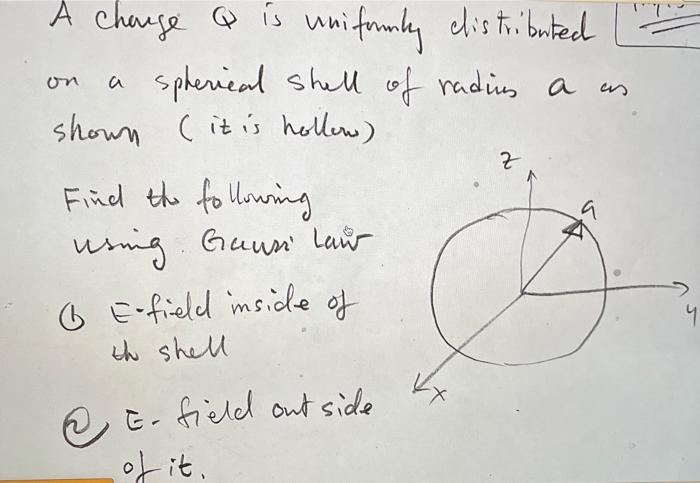 A charge Q is uniformly distributed
on a spherical shell of radius a as
shown (it is hollow)
Find the following
using Gauss' Law
① E-field inside of
the shell
② E-field outside
of it.
z
a
y
x